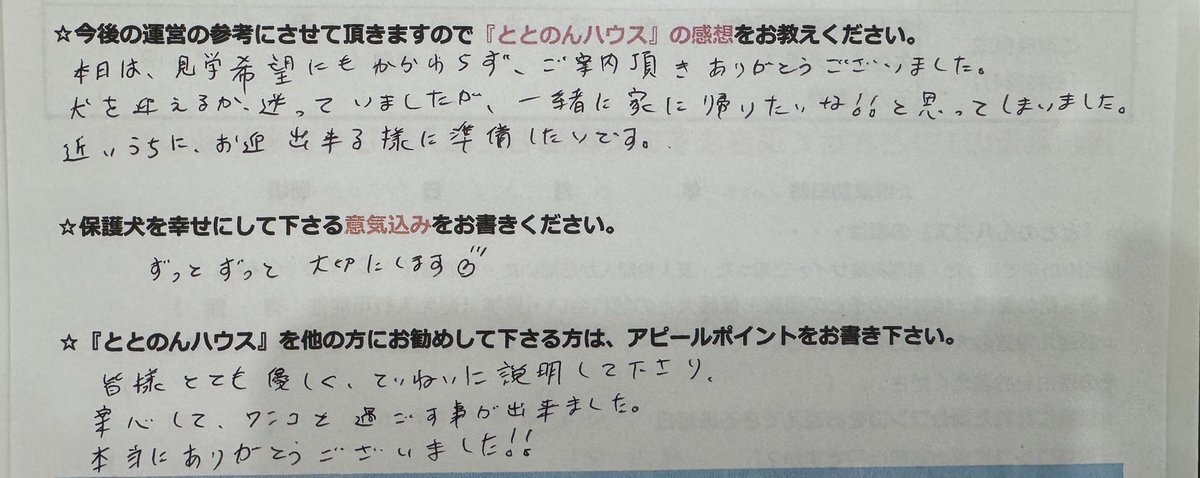 ☆今後の運営の参考にさせて頂きますので『ととのんハウス』の感想をお教えください。
本日は、見学希望にもかかわらず、ご案内頂きありがとうございました。
犬を迎えるか、迷っていましたが、一緒に家に帰りたいな!!と思ってしまいました。
近いうちに、お迎出来る様に準備したいです。
☆保護犬を幸せにして下さる意気込みをお書きください。
ずっとずっと大切にします
☆『ととのんハウス』を他の方にお勧めして下さる方は、アピールポイントをお書き下さい。
皆様とても優しく、ていねいに説明して下さり、
安心して、ワンコと過ごす事が出来ました。
本当にありがとうございました!!